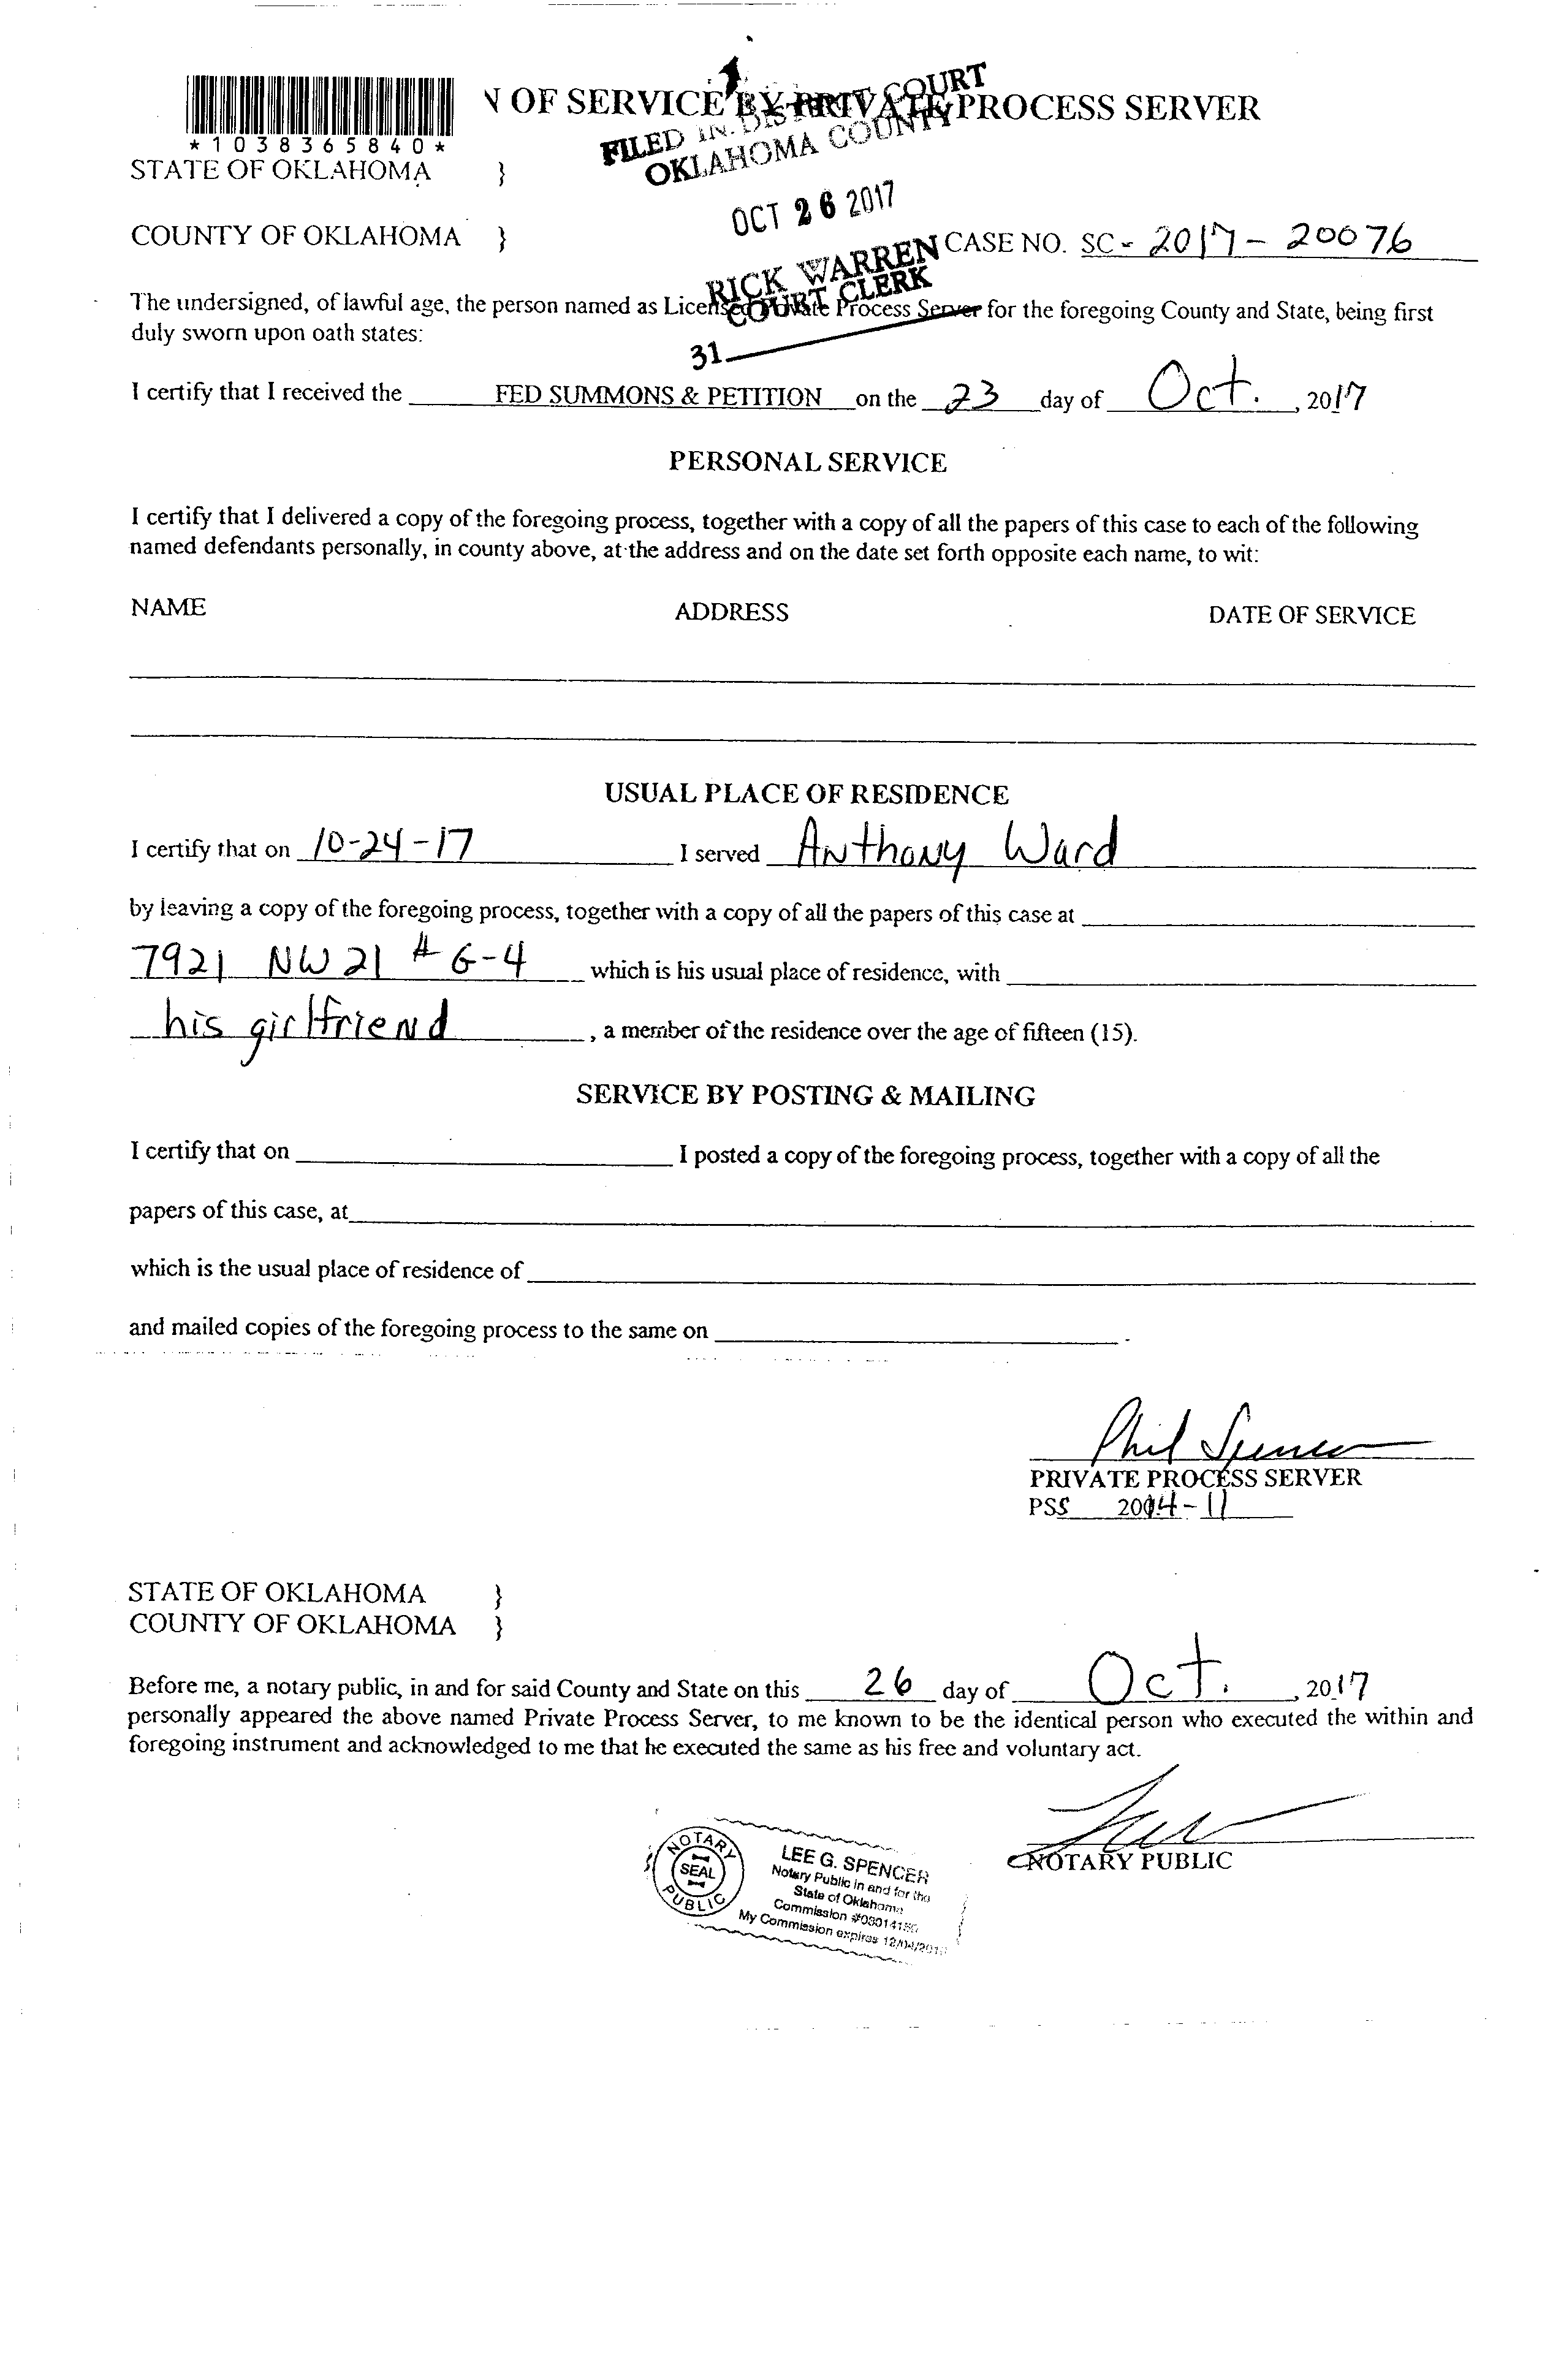 N OF SERVICE BY PRIVATE PROCESS SERVER
*1038365840*
FILED IN DISTRICT COURT
OKLAHOMA COUNTY
STATE OF OKLAHOMA }
OCT 26 2017
COUNTY OF OKLAHOMA }
CASE NO. SC - 2017 - 20076
RICK WARREN
COURT CLERK
The undersigned, of lawful age, the person named as Licensed Private Process Server for the foregoing County and State, being first
duly sworn upon oath states:
31
I certify that I received the FED SUMMONS & PETITION on the 23 day of Oct. , 2017
PERSONAL SERVICE
I certify that I delivered a copy of the foregoing process, together with a copy of all the papers of this case to each of the following
named defendants personally, in county above, at the address and on the date set forth opposite each name, to wit:
NAME ADDRESS DATE OF SERVICE
USUAL PLACE OF RESIDENCE
I certify that on 10-24-17 I served Anthony Ward
by leaving a copy of the foregoing process, together with a copy of all the papers of this case at
7921 NW 21 # G-4 which is his usual place of residence, with
his girlfriend , a member of the residence over the age of fifteen (15).
SERVICE BY POSTING & MAILING
I certify that on I posted a copy of the foregoing process, together with a copy of all the
papers of this case, at
which is the usual place of residence of
and mailed copies of the foregoing process to the same on .
Phil Spencer
PRIVATE PROCESS SERVER
PSS 2014-11
STATE OF OKLAHOMA }
COUNTY OF OKLAHOMA }
Before me, a notary public, in and for said County and State on this 26 day of Oct. , 2017
personally appeared the above named Private Process Server, to me known to be the identical person who executed the within and
foregoing instrument and acknowledged to me that he executed the same as his free and voluntary act.
NOTARY PUBLIC
NOTARY
SEAL
PUBLIC
LEE G. SPENCER
Notary Public in and for the
State of Oklahoma
Commission
My Commission expires